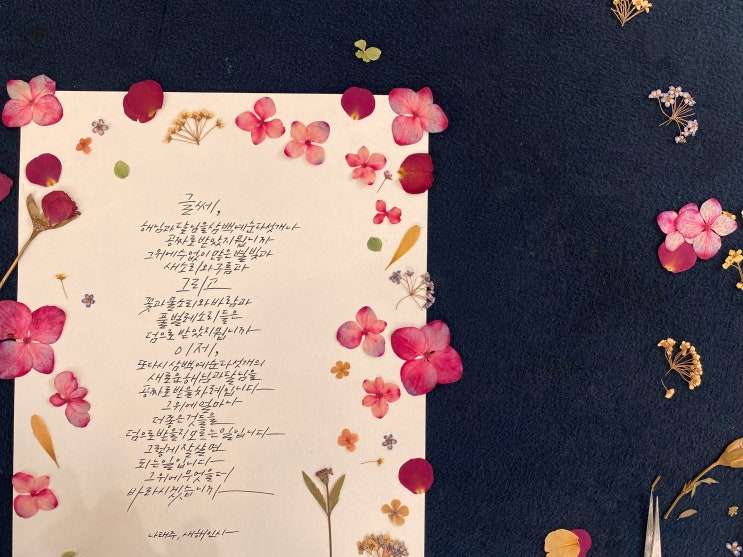 글쎄,
해님과 달님을 삼백예순다섯개나
공짜로 받았지 뭡니까
그위에 수없이 많은 별빛과
새소리와 구름과
그리고
꽃과 물소리와 바람과
풀벌레소리들은
덤으로 받았지 뭡니까
이제,
또다시 삼백예순다섯개의
새로운 해님과 달님을
공짜로 받을 차례입니다
그위에 얼마나
더 좋은 것들을
덤으로 받을지 모르는 일입니다
그렇게 잘 살면
되는 일입니다
그위에 무엇을 더
바라시겠습니까
나태주, 새해인사